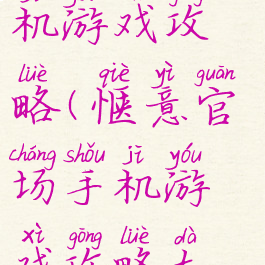 机游戏攻
lüè qiè yì guān
略(惬意官
cháng shǒu jī yóu
场手机游
xì gōng lüè dà
戏攻略大